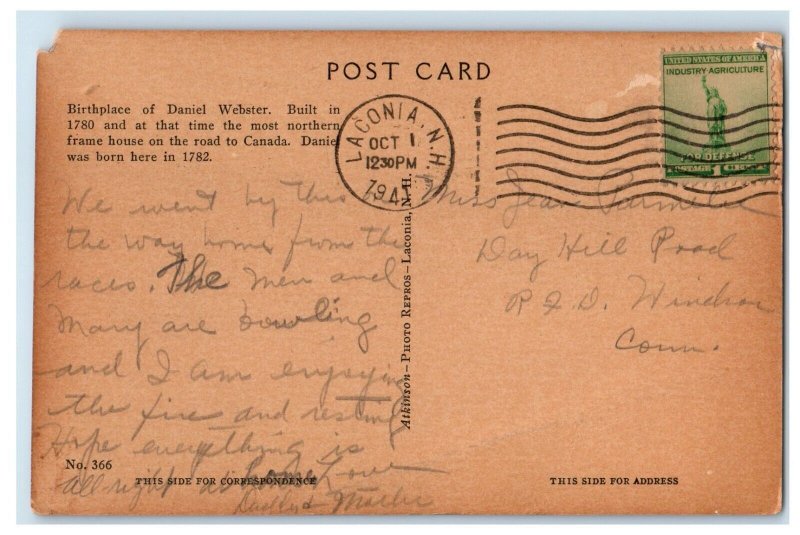 POST CARD
Birthplace of Daniel Webster. Built in
1780 and at that time the most northern
frame house on the road to Canada. Danie
was born here in 1782.
LACONIA, N.H.
OCT 1
12 30 PM
1941
UNITED STATES OF AMERICA
INDUSTRY·AGRICULTURE
FOR DEFENSE
POSTAGE 1 CENT
We went by this
the way home from the
races. The men and
Mary are bowling
and I am enjoying
the fire and resting
Hope everything is
all right at home Love
Mother
No. 366
THIS SIDE FOR CORRESPONDENCE
Atkinson—PHOTO REPROS—Laconia, N. H.
Miss Jean
Day Hill Road
R.F.D. Windsor
Conn.
THIS SIDE FOR ADDRESS